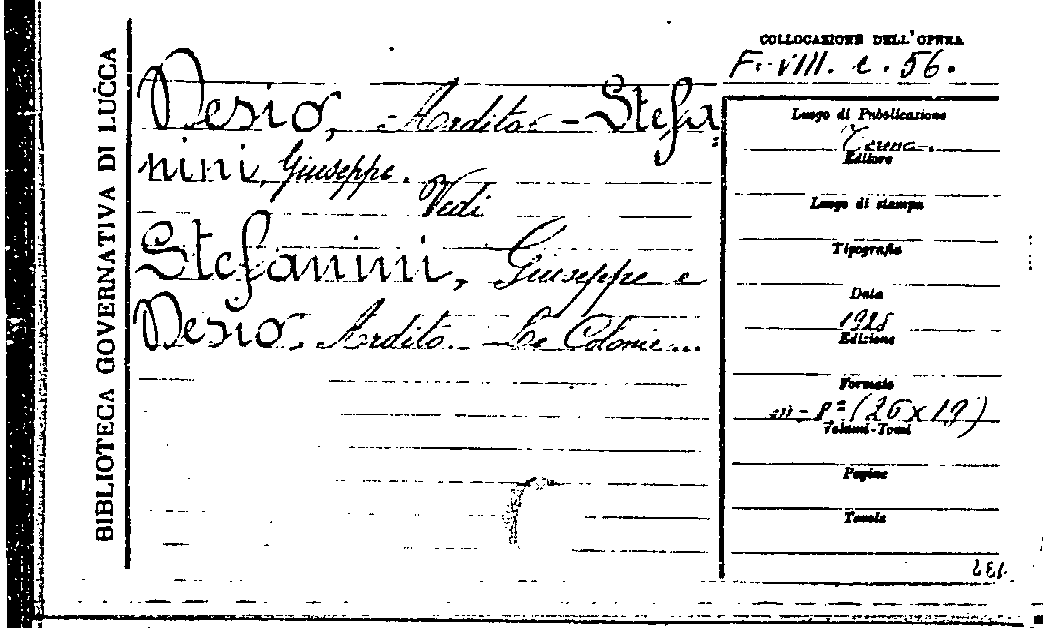 BIBLIOTECA GOVERNATIVA DI LUCCA
COLLOCAZIONE DELL'OPERA
F. VIII. e. 56.
Desio, Ardito - Stefa
nini, Giuseppe.
Vedi
Stefanini, Giuseppe e
Desio Ardito. - Le Colonie...
Luogo di Pubblicazione
Editore
Luogo di stampa
Tipografia
Data
1928
Edizione
Formato
in-8º (26x19)
Volumi-Tomi
Pagine
Tavole